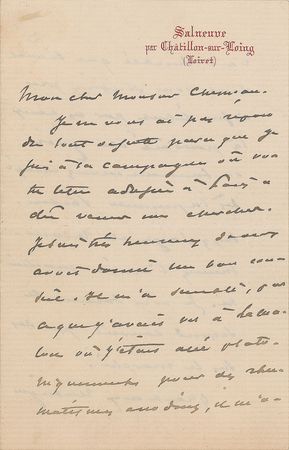 Salneuve
par Châtillon-sur-Loing
(Loiret)
Mon cher Monsieur
Je ne vous ai pas répon
du tout de suite parce que je
suis à la campagne où vo
tre lettre adressée à Paris a
dû venir me chercher.
Je suis très heureux de vous
avoir donné un bon con
seil. Il m'a semblé, par
ce que j'avais vu à
où j'étais allé plato
niquement pour des rhu
matismes anodins, il m'a-